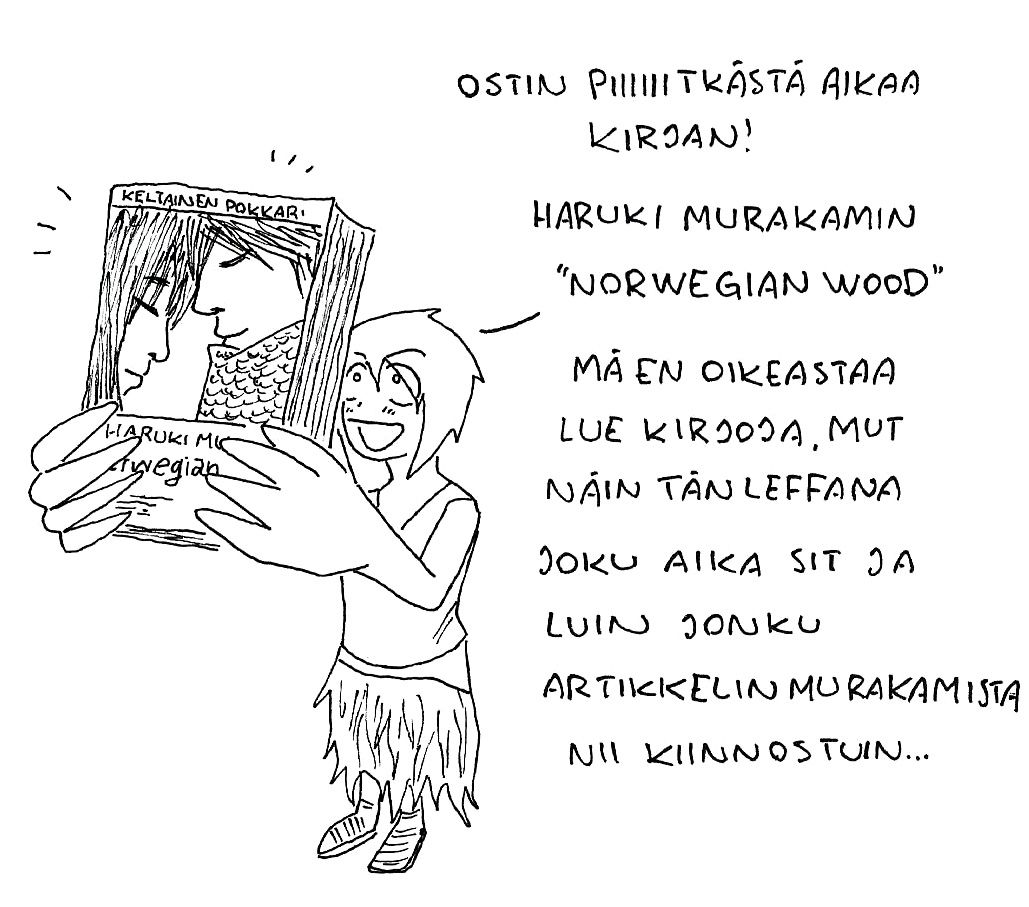 OSTIN PIIIIIITKÄSTÄ AIKAA
KIRJAN!
HARUKI MURAKAMIN
"NORWEGIAN WOOD"
MÄ EN OIKEASTAA
LUE KIRJOJA, MUT
NÄIN TÄN LEFFANA
JOKU AIKA SIT JA
LUIN JONKU
ARTIKKELIN MURAKAMISTA
NII KIINNOSTUIN...
KELTAINEN POKKARI
HARUKI MU
rwegian